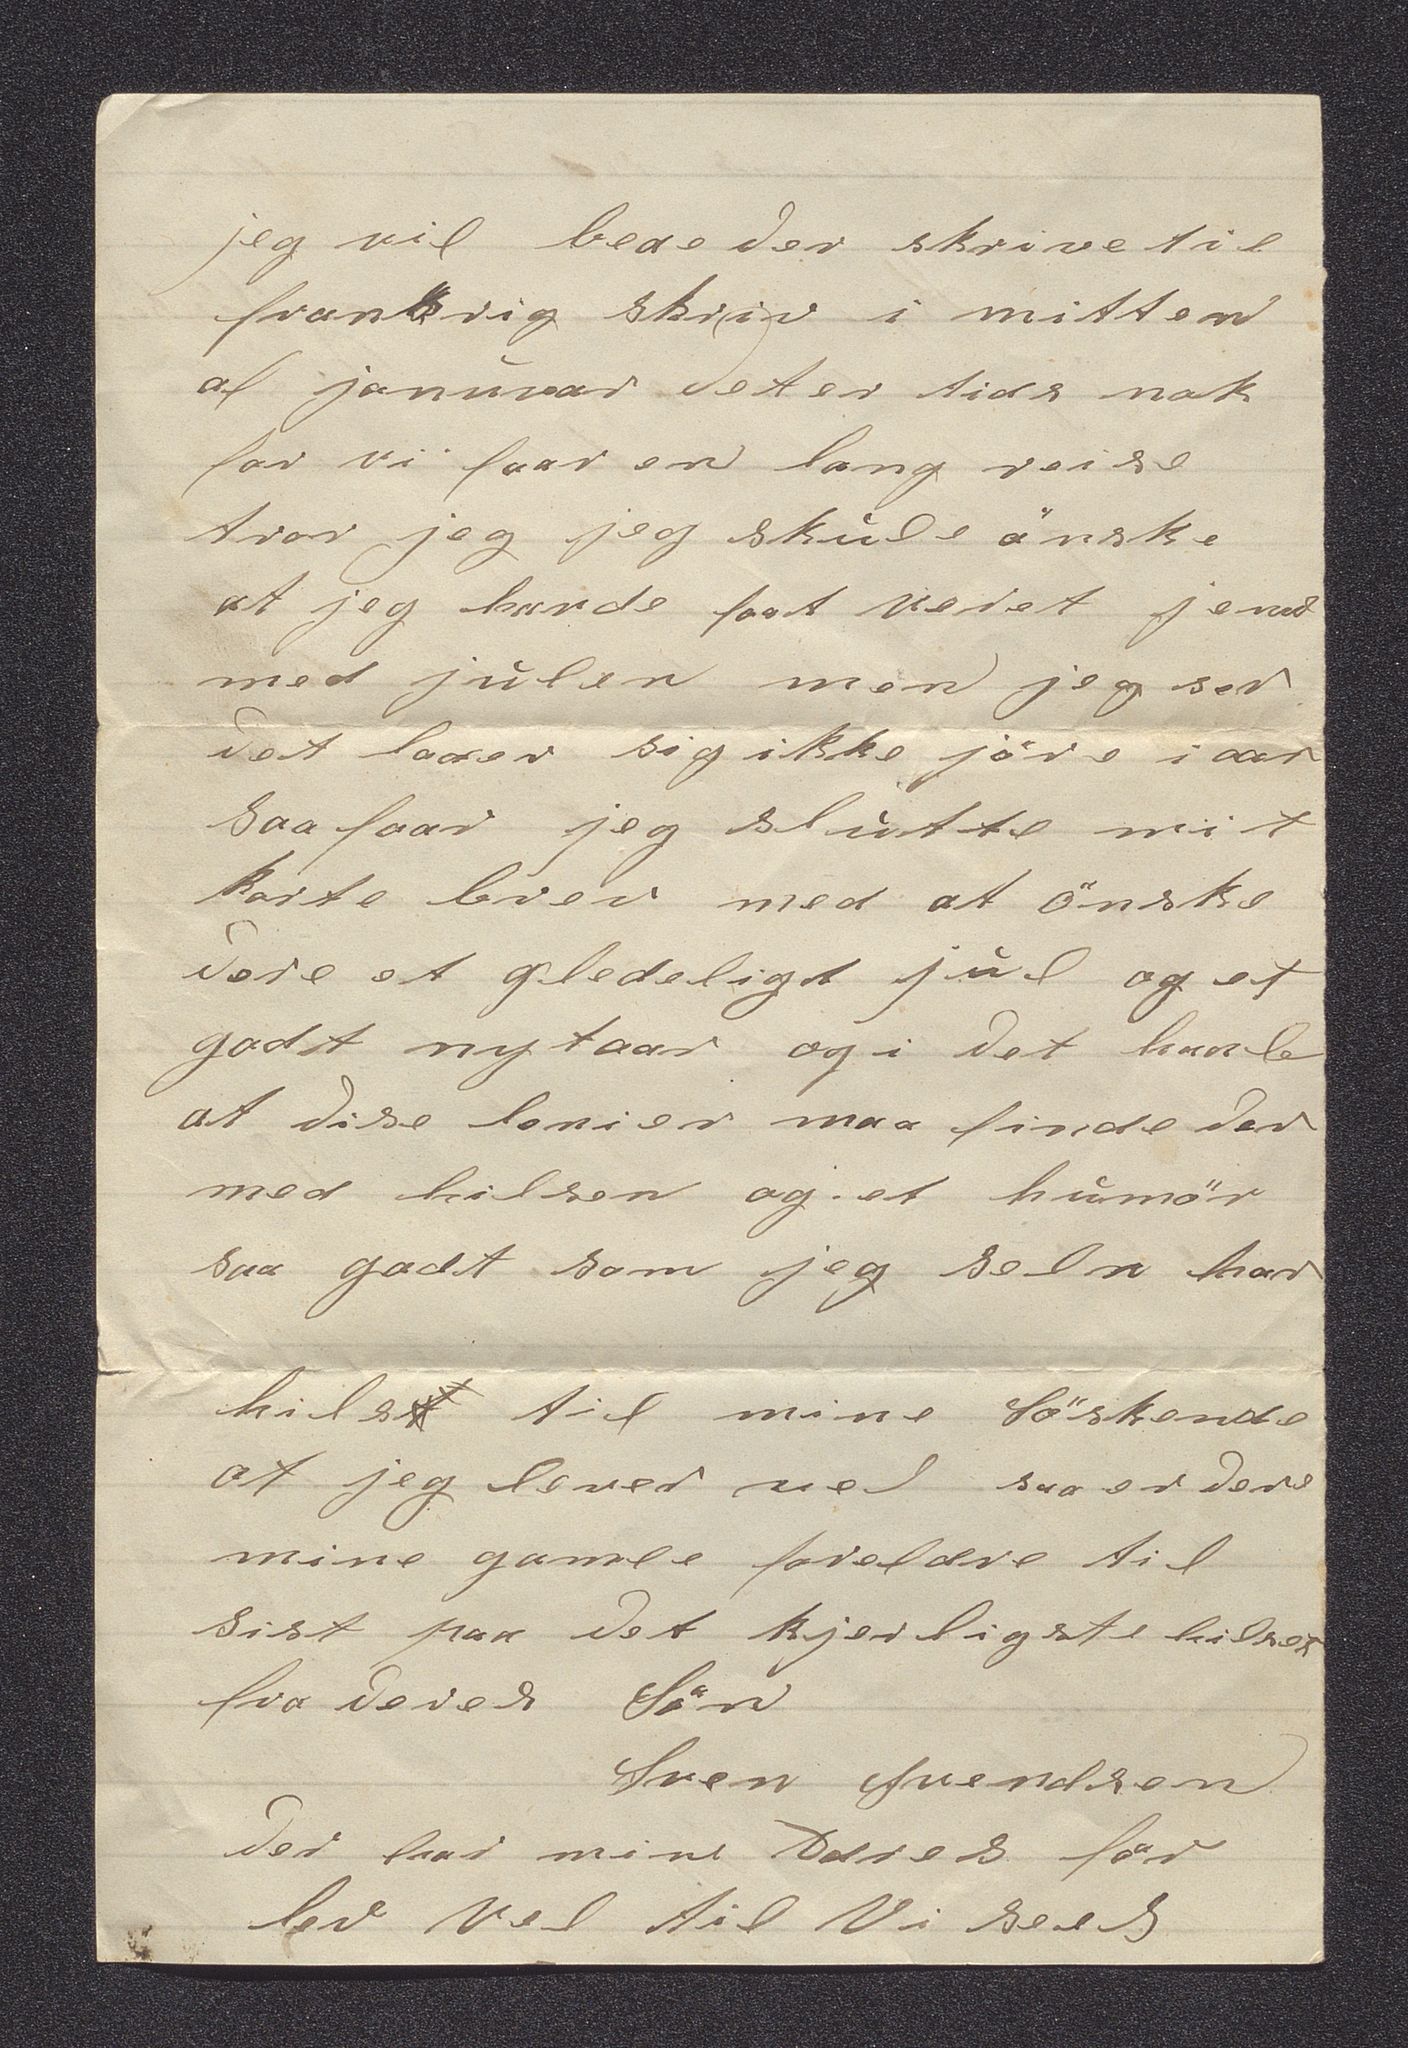 jeg vil bede der skrive til
frankrig skriv i mitten
af januvar det er tids nok
for vi faar en lang reise
tror jeg jeg skule önske
at jeg havde faat veret jemt
med julen men jeg ser
det laaer sig ikke jöre i aar
saa faar jeg slutte mit
korte brev med at önske
dere et gledeligt jul og et
godt nytaar og i det haale
at dise linier maa finde der
med hilsen og et humör
saa godt som jeg selv har
hils til mine Söskende
at jeg lever vel saa er dere
mine gamle foreldre til
sist paa det kjerligste hilset
fra deres Sön
Sven Svendsen
der har mine Adres för
lev vel til Vi sees